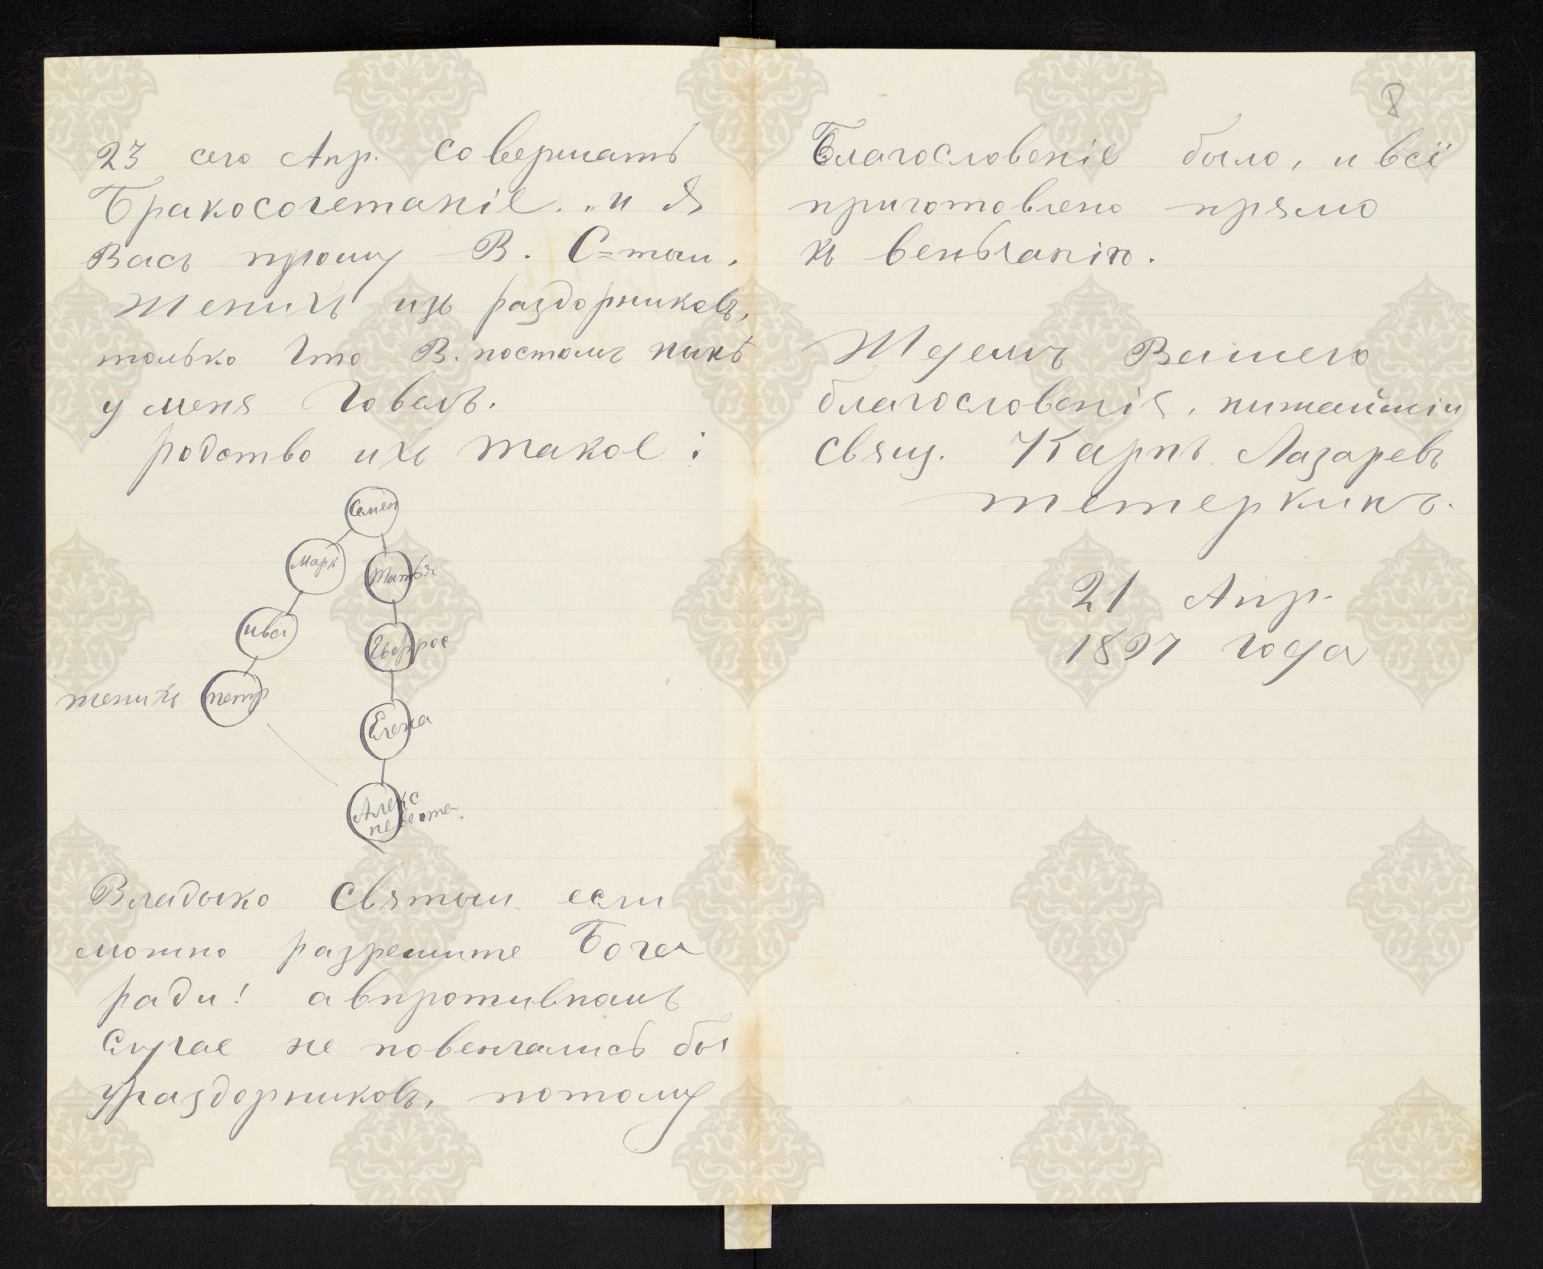 23 сего Апр. совершать
Бракосочетаніе.. и Я
Васъ прошу В. С=тыи.
Женихъ изъ раздорниковъ,
только что В. постомъ нинѣ
у меня говелъ.
родство ихъ такое:
Семен
Марк
Татья
Ива
Евфрос
женихъ
петр
Елена
Алекс
невеста.
Владыко Святыи если
можно разрешите Бога
ради! а впротивномъ
случае не повенчались бы
ураздорниковъ, потому
8
Благословеніе было, и всё
приготовлено прямо
къ венѣчанію.
Ждемъ Вашего
благословенія, нижайшіи
Свящ. Карпъ Лазаревъ
тетеркинъ.
21 Апр.
1897 года